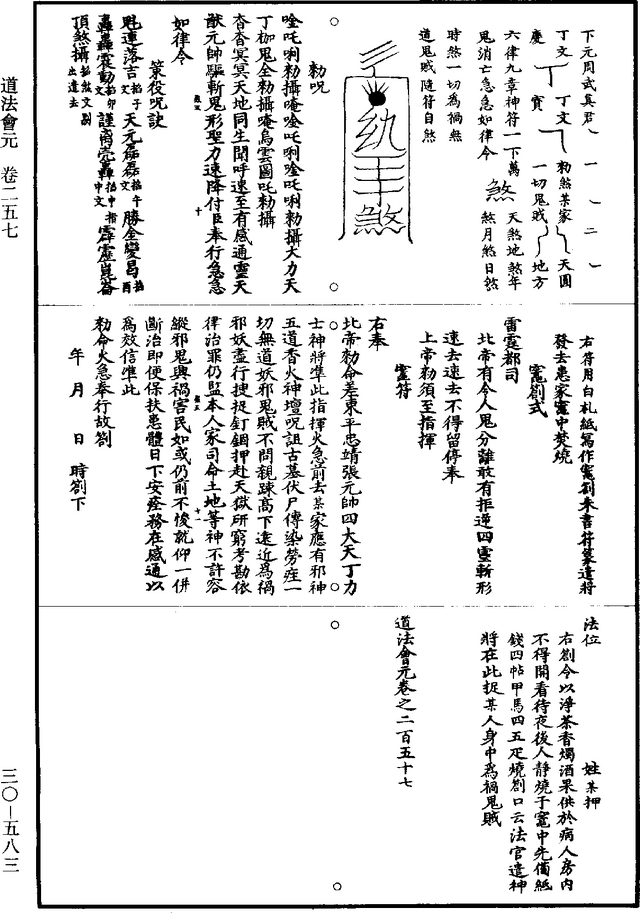 道法會元　卷二五七
三〇—五八三
下元周武真君
丁文　丁文　勑煞某家　天圓
慶　賓　一切鬼賊　地方
六律九章神符一下萬　天煞地煞年
鬼消亡急急如律令　煞　煞月煞日煞
時煞一切為禍無
道鬼賊隨符自煞
煞
勑呪
唫吒唎勑攝唵唫吒唎唫吒唎勑攝大力天
丁枷鬼全勑攝唵烏雲圖吒勑攝
杳杳冥冥天地同生聞呼速至有感通靈天
猷元帥驅斬鬼形聖力速降付臣奉行急急
如律令
策役呪訣
鬼連落吉天元磊磊勝全變昌
轟轟震動謹霹靂崑崙
頂煞攝
右符用白札紙寫作竈劄朱書符篆遣將
發去患家竈中焚燒
竈劄式
雷霆都司
北帝有令人鬼分離敢有拒逆四靈斬形
速去速去不得留停奉
上帝勑須至指揮
竈符
右奉
北帝勑命差東平忠靖張元帥四大天丁力
士神將準此指揮火急前去某家應有邪神
五道香火神壇呪詛古墓伏尸傳染勞疰一
切無道妖邪鬼賊不問親踈高下遠近為禍
邪妖盡行搜捉釘錮押赴天獄所窮考勘依
律治罪仍監本人家司命土地等神不許容
縱邪鬼興禍害民如或仍前不悛就仰一併
斷治即便保扶患體日下安痊務在感通以
為效信準此
勑命火急奉行故劄
年　月　日　時劄下
法位　姓某押
右劄令以淨茶香燭酒果供於病人房內
不得開看待夜後人靜燒于竈中先備紙
錢四帖甲馬四五疋燒劄口云法官遣神
將在此捉某人身中為禍鬼賊
道法會元卷之二百五十七